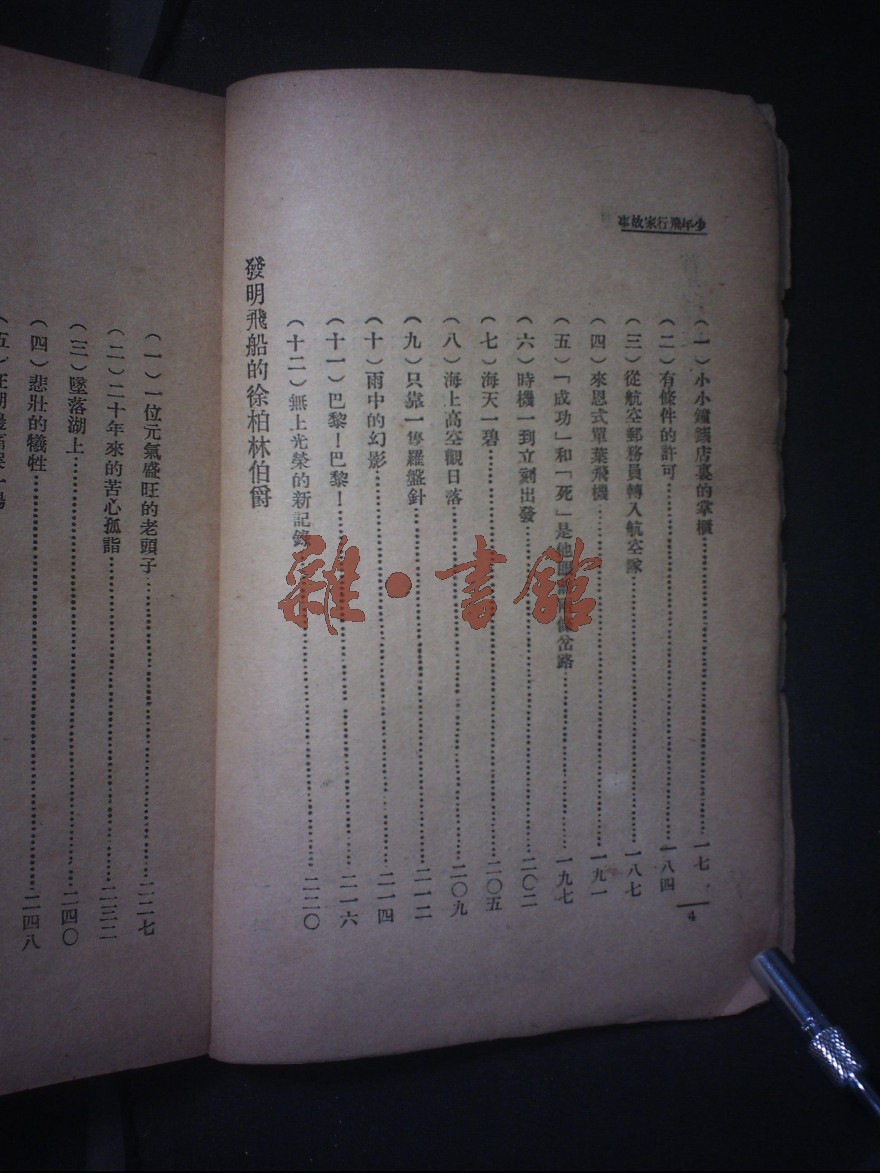 少年飛行家故事
(一)小小鐘錶店裏的掌櫃…一七
(二)有條件的許可…一八四
(三)從航空郵務員轉入航空隊…一八七
(四)來恩式單葉飛機…一九一
(五)「成功」和「死」是他 岔路…一九七
(六)時機一到立刻出發…二〇二
(七)海天一碧…二〇五
(八)海上高空觀日落…二〇九
(九)只靠一隻羅盤針…二一二
(十)雨中的幻影…二一四
(十一)巴黎!巴黎!…二一六
(十二)無上光榮的新記錄…二二〇
發明飛船的徐柏林伯爵
4
(一)一位元氣盛旺的老頭子…二二七
(二)二十年來的苦心孤詣…二三二
(三)墜落湖上…二四〇
(四)悲壯的犧牲…二四八
雜·書館